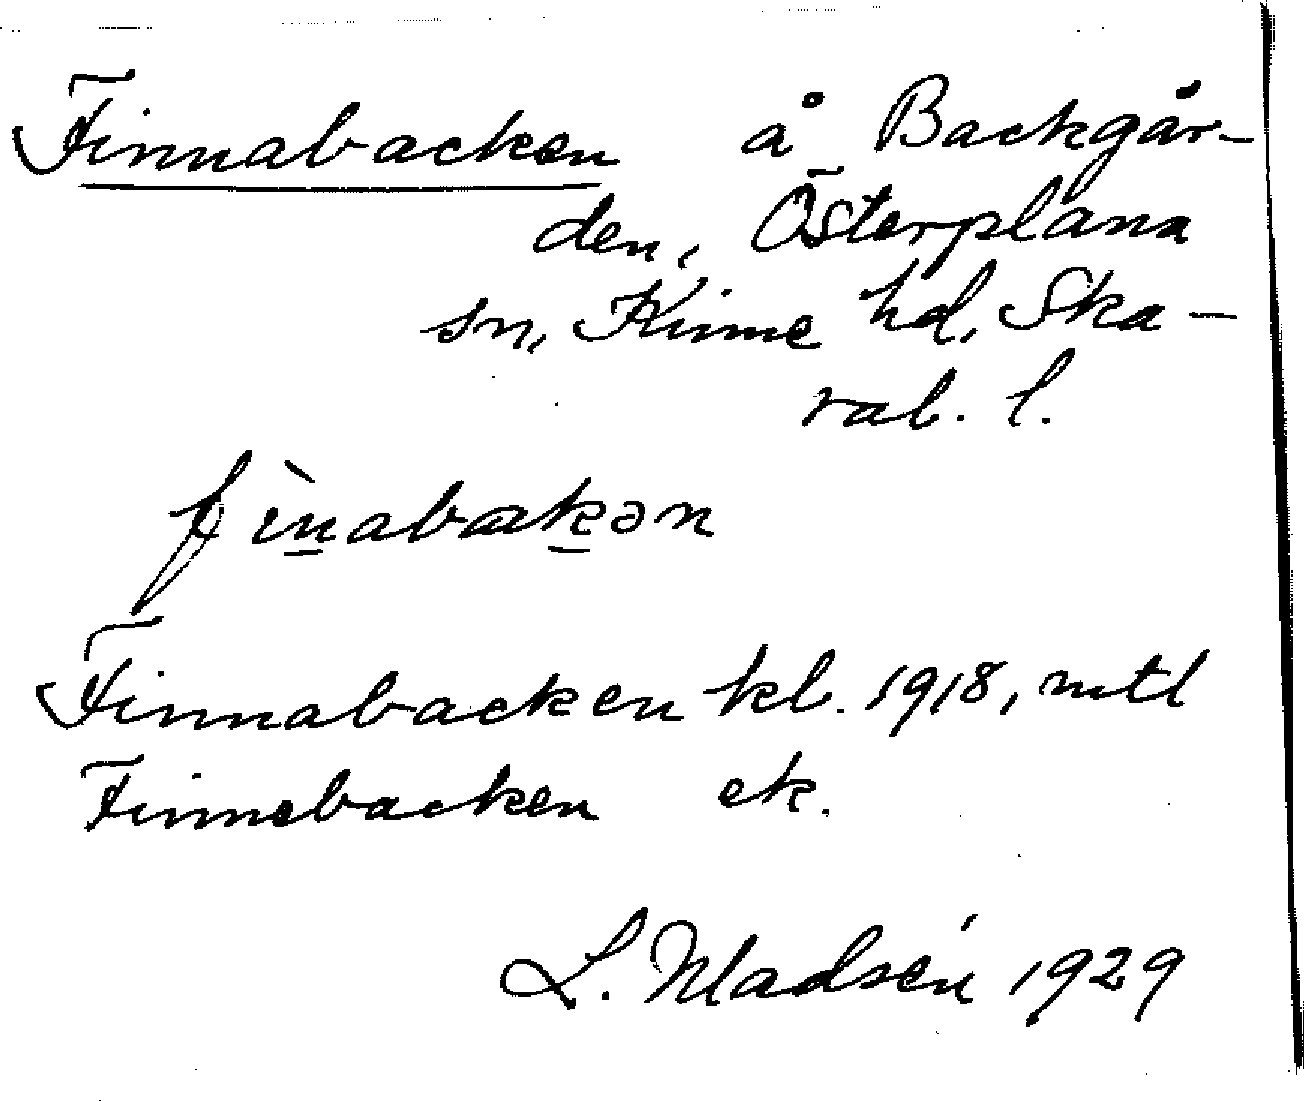 Finnabacken å Backgår-
den, Österplana
sn, Kinne hd, Ska-
rab. l.
fìn̲abak̲ən
Finnabacken kl. 1918, mtl
Finnebacken ek.
L. Madsén 1929